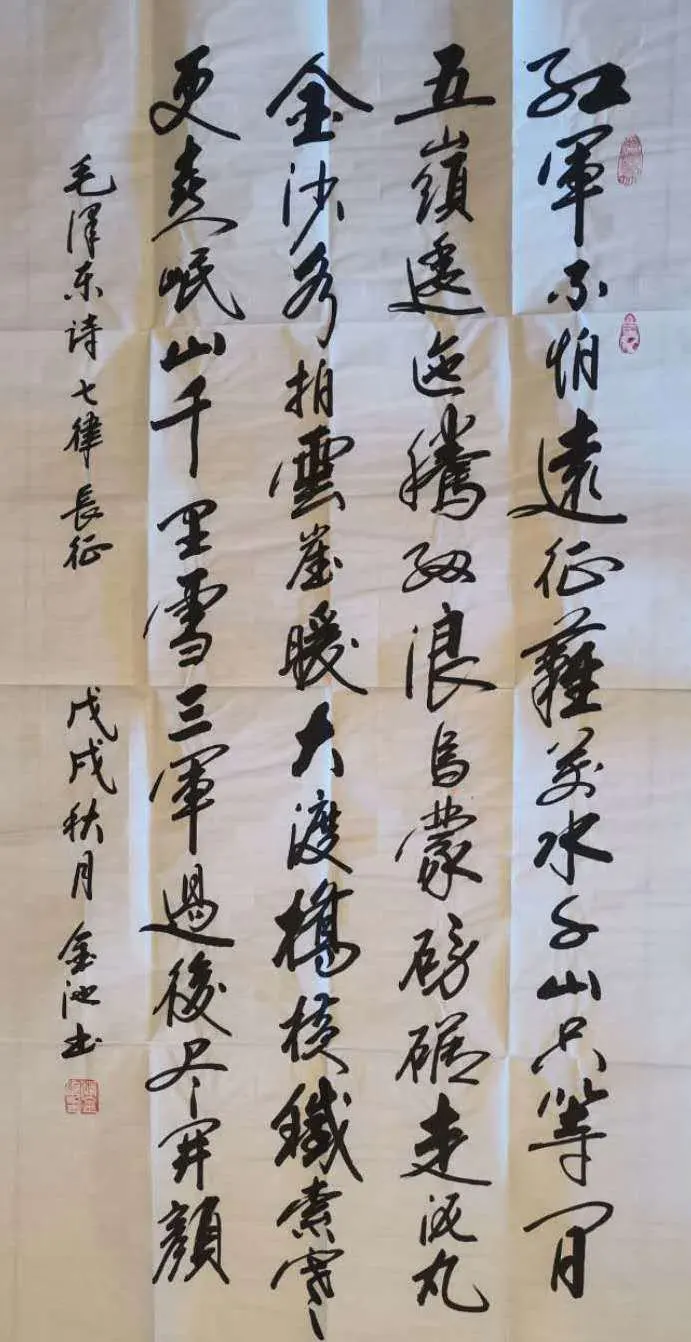 红軍不怕遠征難萬水千山只等閒
五嶺逶迤騰細浪烏蒙磅礴走泥丸
金沙水拍雲崖暖大渡橋横鐵索寒
更喜岷山千里雪三軍過後尽開顏
毛泽东诗七律長征 戊戌秋月金池书